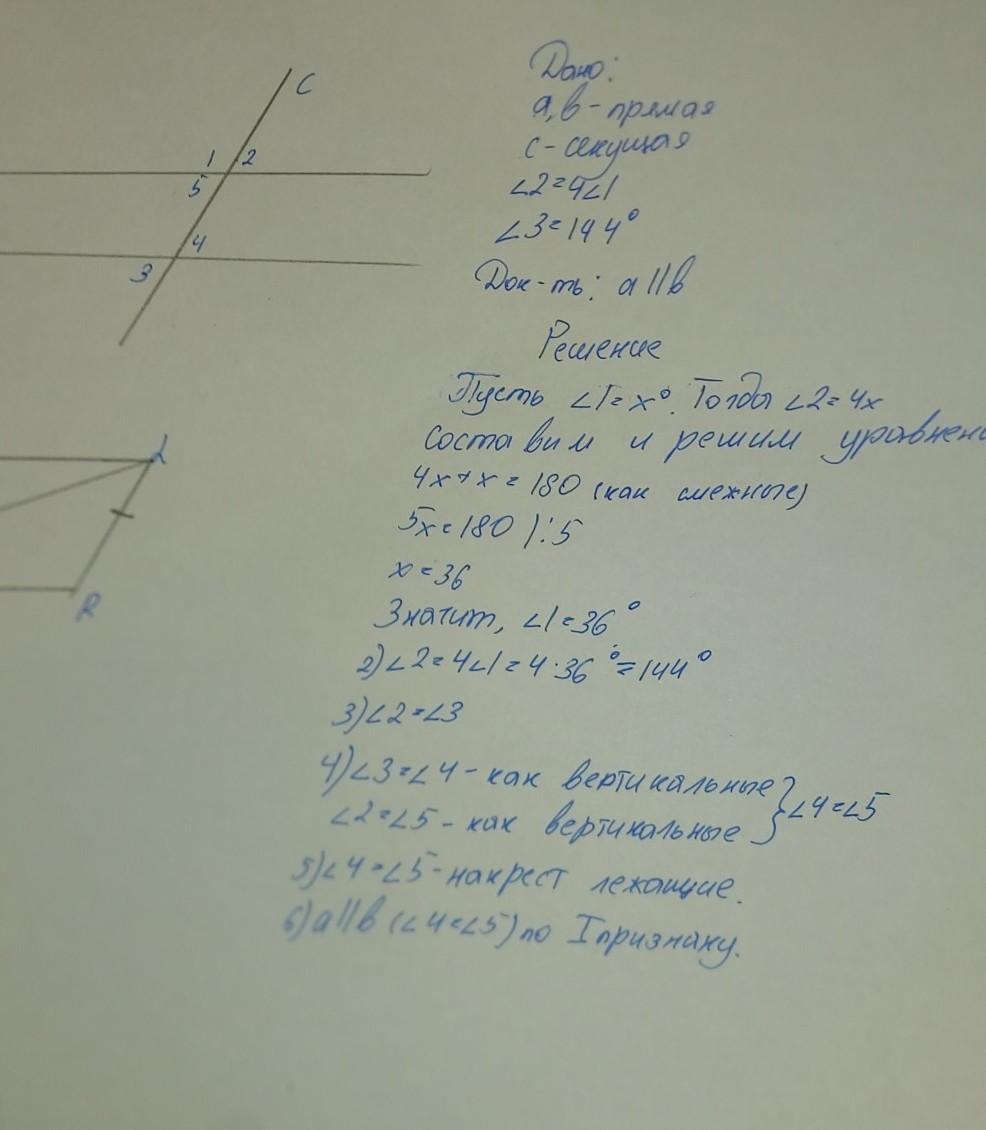 C
1 2
5
4
3
L
R
Дано:
a,b - прямая
c - секущая
∠2=4∠1
∠3=144°
Док-ть: a||b
Решение
Пусть ∠1=x°. Тогда ∠2=4x
Составим и решим уравнени
4x+x=180 (как смежные)
5x=180 ):5
x=36
Значит, ∠1=36°
2)∠2=4∠1=4·36°=144°
3)∠2=∠3
4)∠3=∠4 - как вертикальные } ∠4=∠5
∠2=∠5 - как вертикальные
5)∠4=∠5 - накрест лежащие.
6)a||b (∠4=∠5) по I признаку.